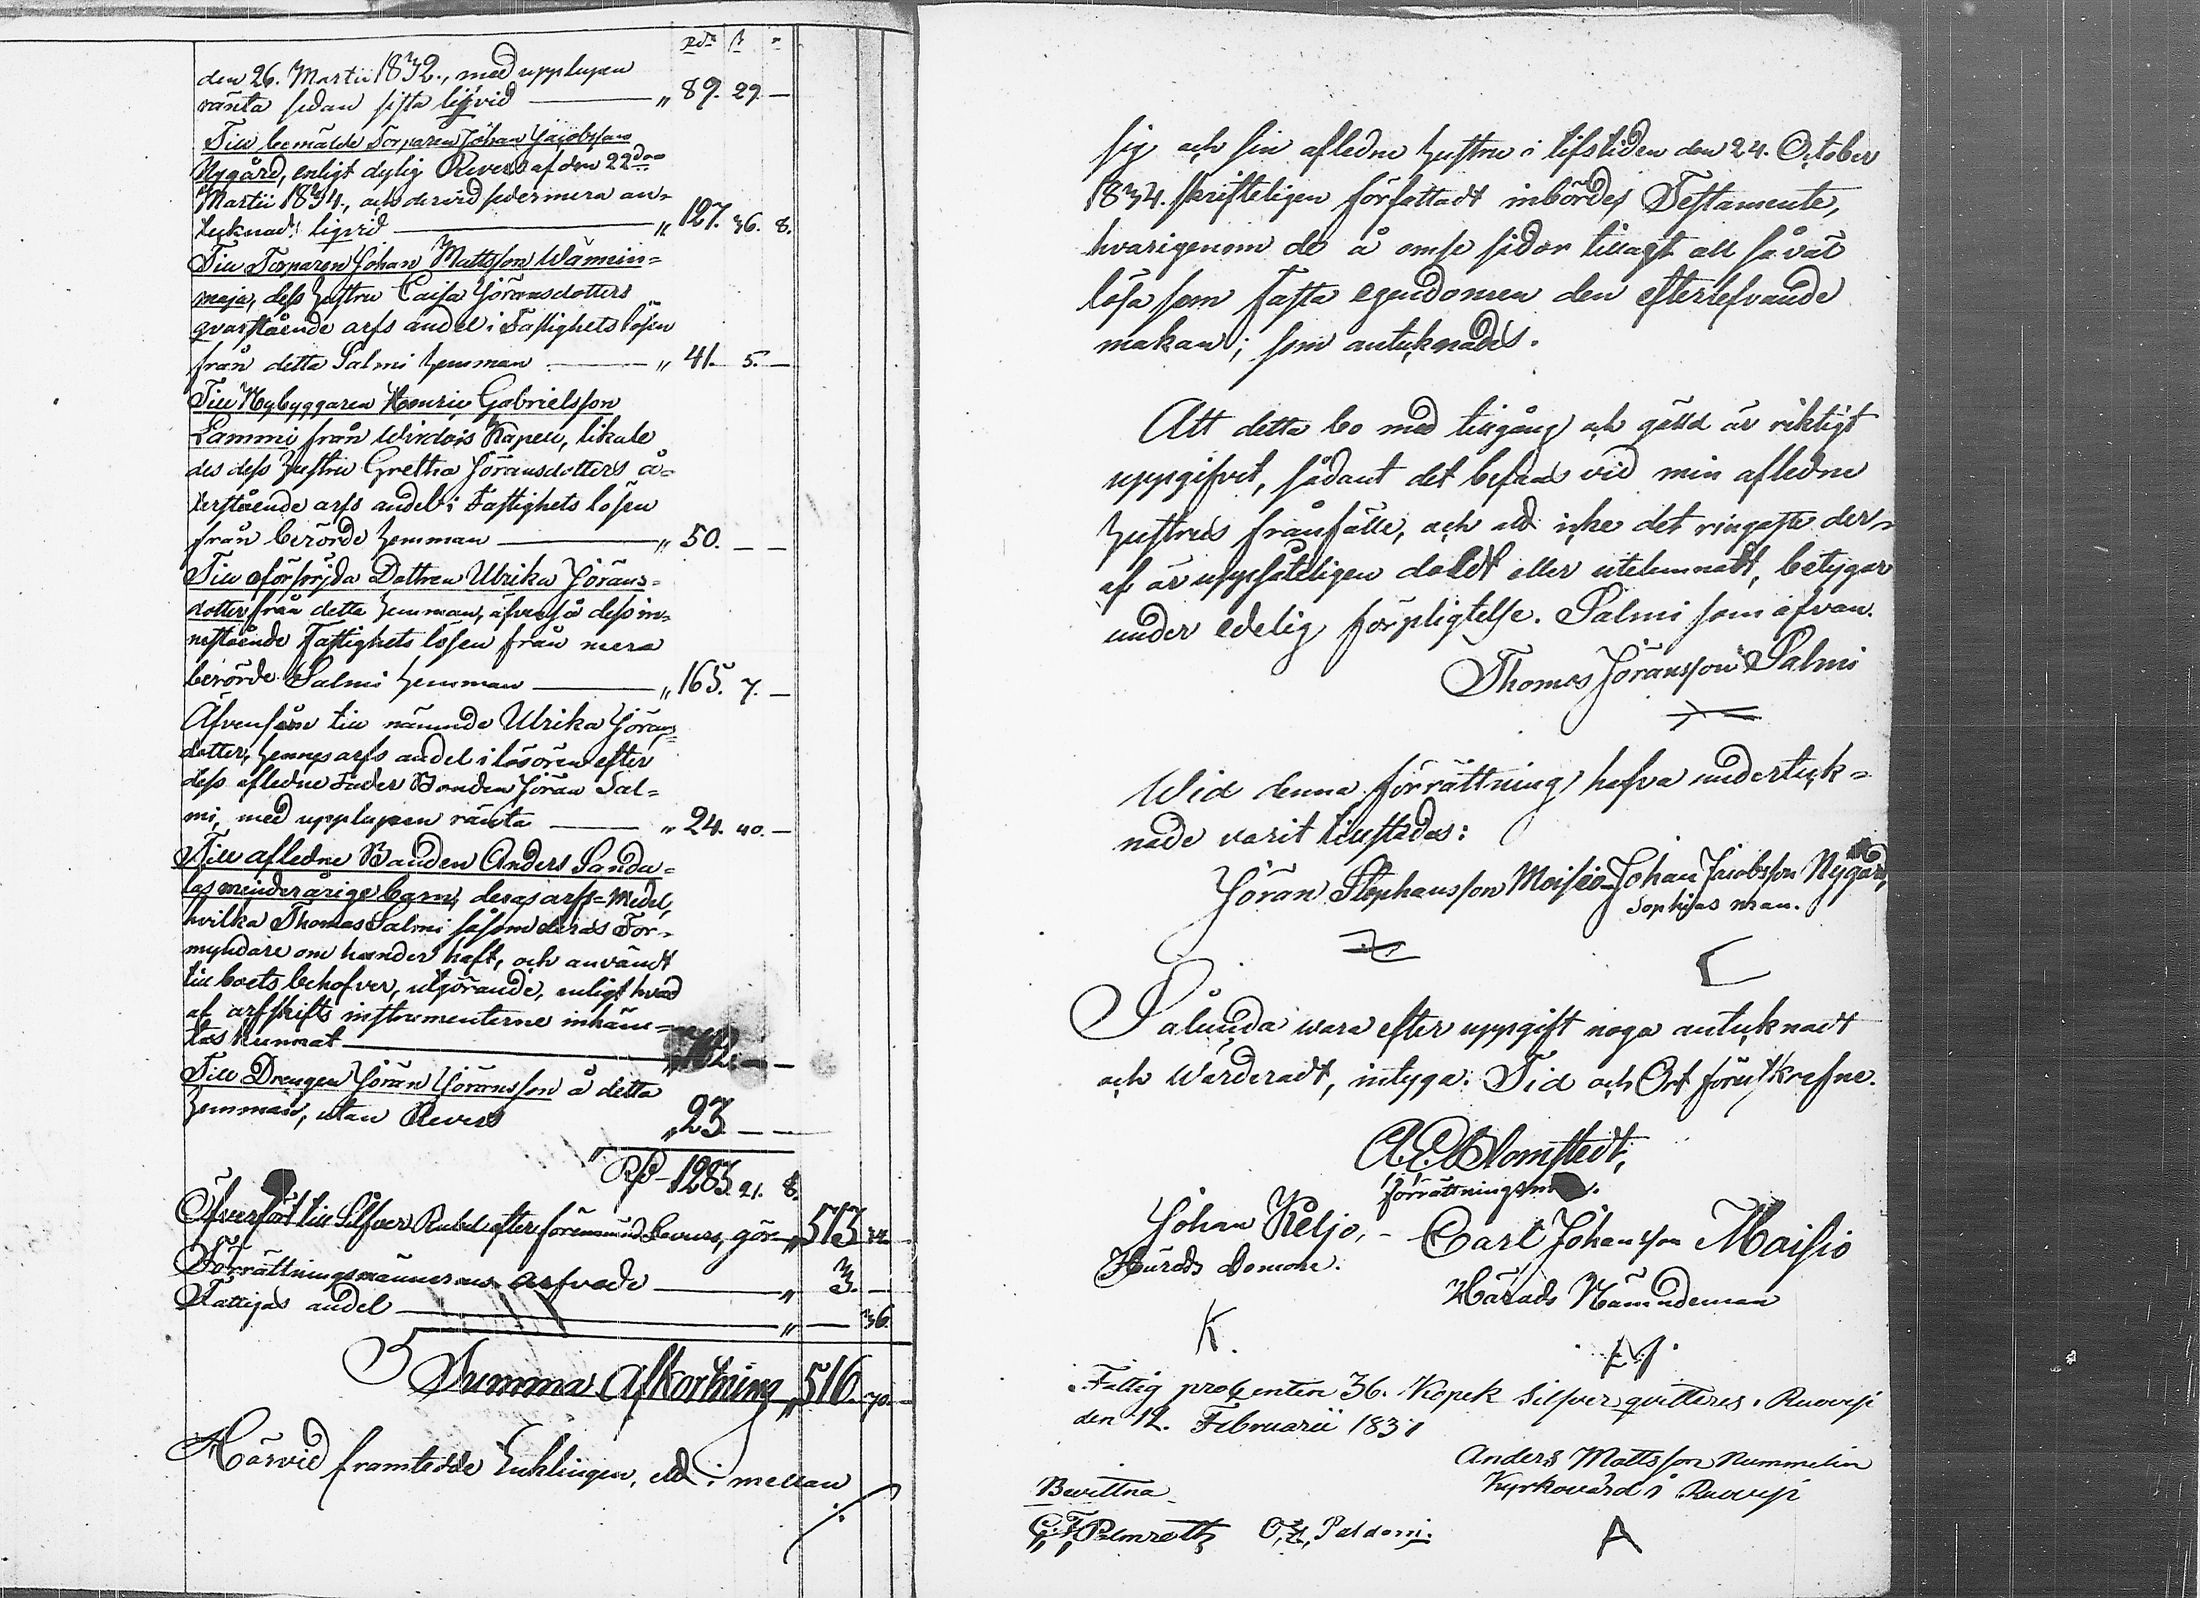 Rdr ß r
den 26. Martii 1832., med upplupen
ränta sedan sista liqvid — „ 89. 29. —
Till bemälde Torparen Johan Jacobsson
Nygård, enligt dylig Revers af den 22dra
Martii 1834., och dervid sedermera an-
tecknad: liqvid — „ 127. 36. 8.
Till Torparen Johan Mattsson Wännin=
maja, dess hustru Caisa Jöransdotters
qvarstående arfs andel i Fastighets lösen
från detta Salmi hemman — „ 41. 5. —
Till Nybyggaren Henric Gabrielsson
Lammi från Wirdois Kapell, likale
des dess hustru Gretha Jöransdotters å=
terstående arfs andel i Fastighets lösen
från berörde hemman — „ 50. — —
Till oförsörjda Dottren Ulrika Jörans=
dotter från detta hemman, äfvenså dess in=
nestående Fastighets lösen från mera
berörde Salmi hemman — „ 165. 7. —
Äfvensom till nämnde Ulrika Jörans=
dotter, hennes arfs andel i lösören efter
dess afledne Fader Bonden Jöran Sal=
mi, med upplupen ränta — „ 24. 40. —
Till afledne Bonden Anders Sanda=
las minderårige barn, deras arfs=medel,
hvilka Thomas Salmi såsom deras För=
myndare om händer haft, och användt
till boets behofver, utgörande, enligt hvad
af arfskifts instrumenterne inhäm=
tas kunnat — —
Till Drengen Jöran Jöransson å detta
hemman, utan Revers „ 23. — —
1283. 21. 8.
Öfverfört till Silfver Rubel efter förenämnd Cours, gör „ 513.
Förrättningsmännernas arfvode — „ 3. —
Fattigas andel — „ — 36.
Summa Afkortning „ 516. 70.
Härvid framtedde Enklingen, ett i mellan
./.
sig och sin afledne hustru i lifstiden den 24. October
1834. skrifteligen författadt inbördes Testamente,
hvarigenom de å omse sidor tillagt all så väl
lösa som fasta egendomen den efterlefvande
makan; som antecknades.
Att detta bo med tillgång och gäld är riktigt
uppgifvet, sådant det befans vid min afledne
hustrus frånfälle, och att icke det ringaste der=
af är uppsåteligen doldt eller utelemnadt, betygar
under edelig förpligtelse. Salmi som ofvan.
Thomas Jöransson Salmi
Wid denna förrättning hafva underteck=
nade varit tillstädes:
Jöran Stephansson Moisio Johan Jacobsson Nygård,
Sophias man.
Sålunda wara efter uppgift noga antecknadt
och Wärderadt, intyga. Tid och Ort förutskrefne.
A. E. Blomstedt,
förrättningsman.
Johan Keljo, - Carl Johansson Moisio
Härads Domare. Härads Nämndeman
K.
Fattig procenten 36. Kopek Silfver qvitteres. Ruovesi
den 12. Februarii 1837
Anders Mattsson Nummelin
Kyrkovärd i Ruovesi
Bevittna
G. F. Palmroth O. H. Paldani.
A